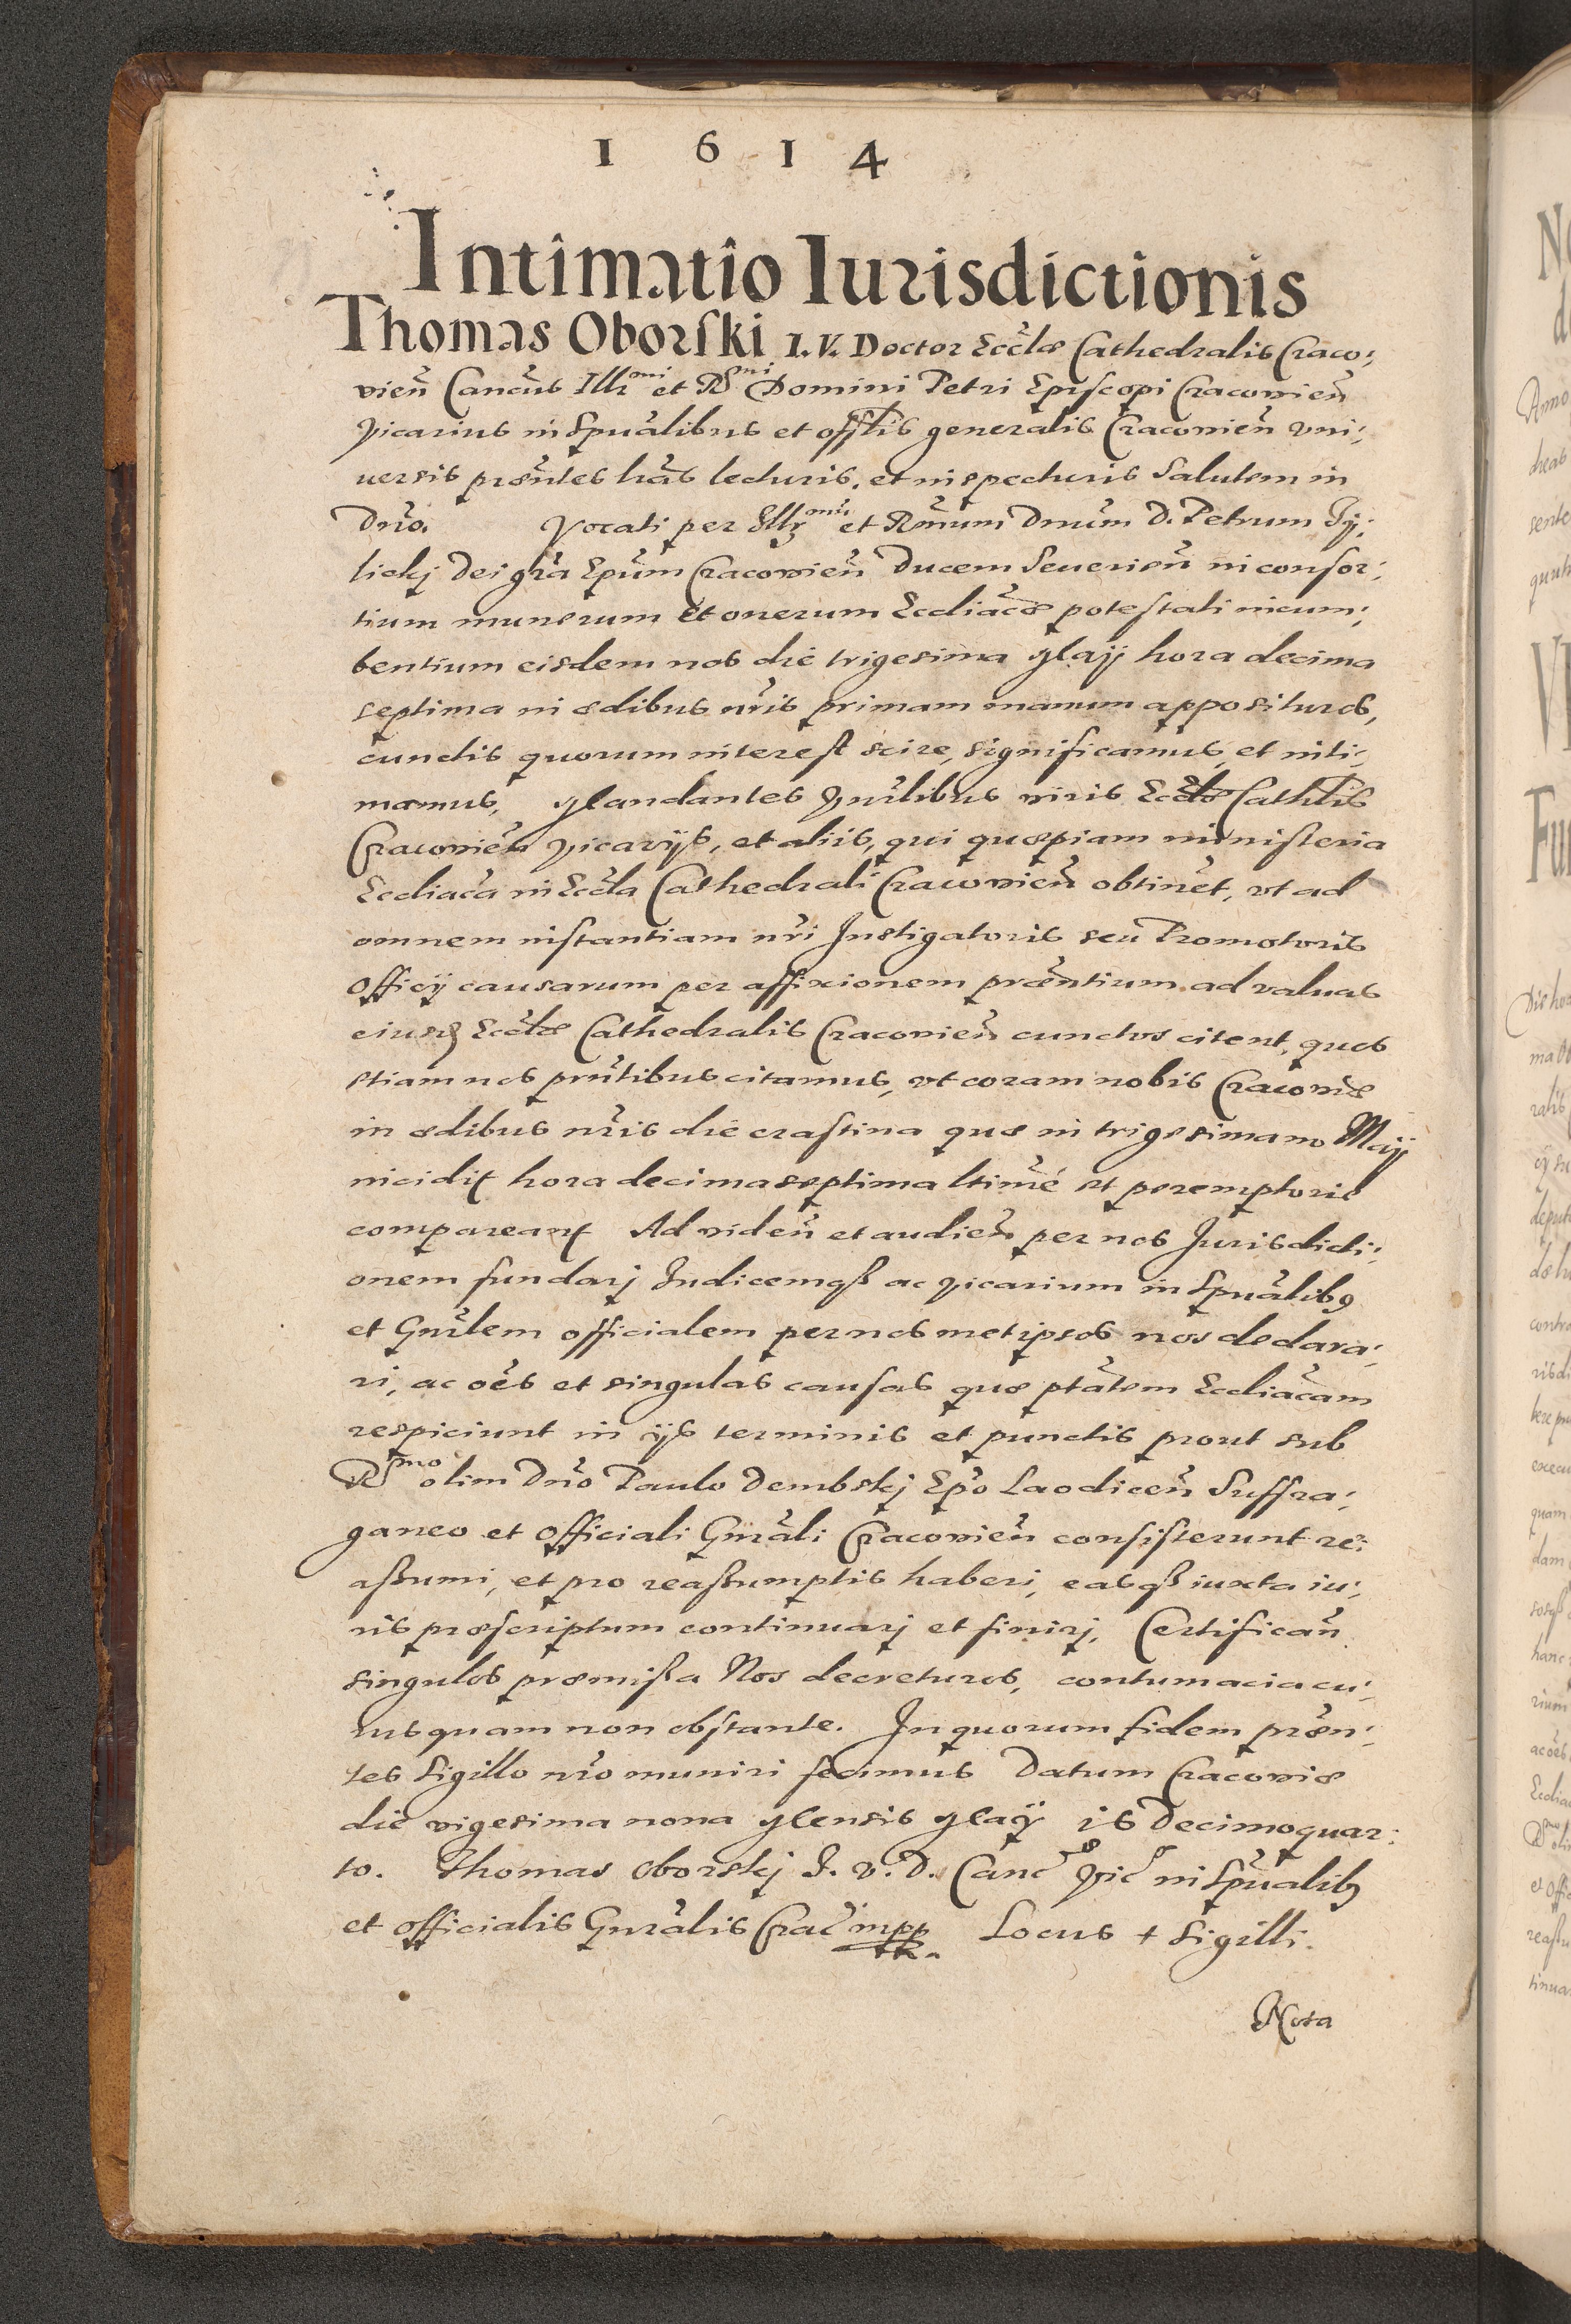 1 6 1 4
Intimatio Iurisdictionis
Thomas Oborski I. V. Doctor Eccłæ Cathedralis Craco:
vieñ Cancus Illr^mi et R^mi Domini Petri Episcopi Cracovieñ
Vicarius in Spũalibus et offłis generalis Cracovieñ uni:
uersis præntes lrãs lecturis, et inspecturis Salutem in
Dño. Vocati per Illr^mũ et Rmũm Dnũm D. Petrum Ty:
lickj Dei grã Epũm Cracovieñ Ducem Seuerieñ in consor:
tium munerum et onerum Eccliacæ potestati incum:
bentium eisdem nos die trigesima Maij hora decima
septima in ædibus nris primam manum apposituros,
cunctis quorum interest scire, significamus, et inti:
mamus, Mandantes Hnrlibus viris Eccłæ Cathłis
Cracovieñ Vicarijs, et aliis, qui quæpiam ministeria
Eccliaca in Eccła Cathedrali Cracovieñ obtinet, vt ad
omnem instantiam nri Instigatoris seu Promotoris
Officij causarum per affixionem præntium ad valuas
eiusd Eccłæ Cathedralis Cracovieñ cunctos citent, quos
etiam nos pñtibus citamus, vt coram nobis Cracoviæ
in ædibus nris die crastina quæ in trigesimam Maij
incidit hora decima septima ltimé et peremptorie
compareant Ad videñ et audieñ per nos Jurisdicti:
onem fundarj Iudicemqß ac Vicarium in Spũalibꝯ
et Gnrlem officialem per nos metipsos nos declara:
ri, ac oẽs et singulas causas quæ ptãtem Eccliacam
respiciunt in ijs terminis et punctis prout sub
R^mo olim Dño Paulo Dembskj Epõ Laodiceñ Suffra:
ganeo et Officiali Gnrãli Cracovieñ consisterunt re:
aßumi, et pro reaßumptis haberi, easqß iuxta iu:
ris præscriptum continuarj et finirj, Certificañ
singulos præmißa Nos decreturos, contumacia cu:
iusquam non obstante. In quorum fidem præn:
tes Sigillo nro muniri fecimus Datum Cracoviæ
die vigesima nona Mensis Maij 16 Decimoquar:
to. Thomas Oborskj I. V. D. Canc^s Vic^s in Spũalib
et officialis Gnrãlis Crac mpp Locus + Sigilli.
Nota